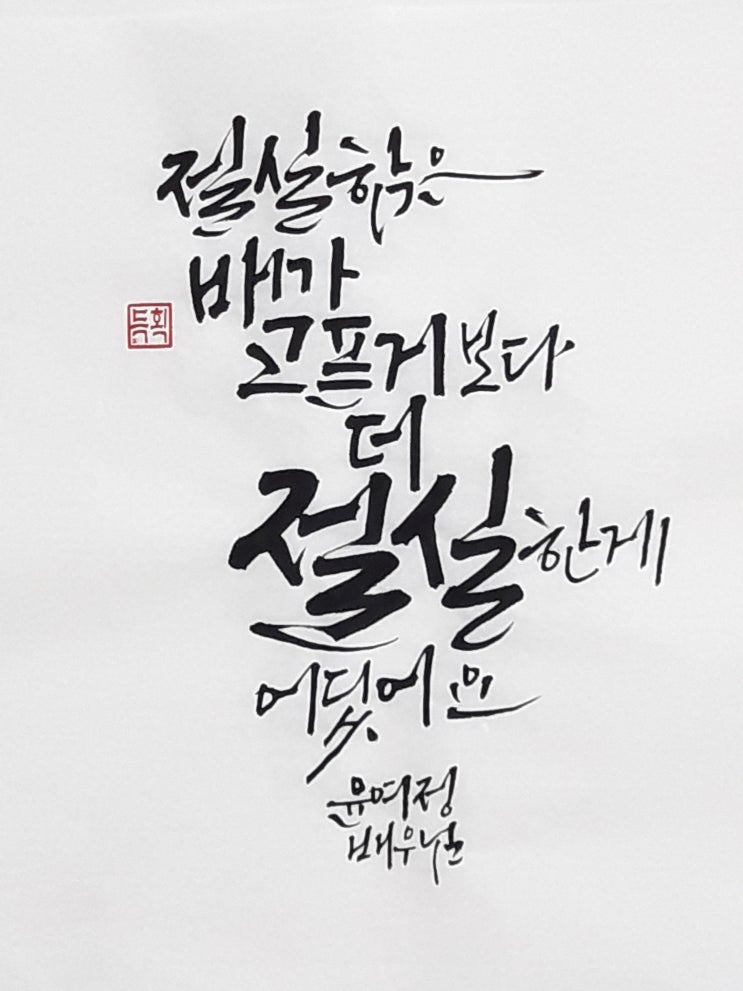 절실함은
배가
고픈거보다
더
절실한게
어딨어요
윤여정
배우님